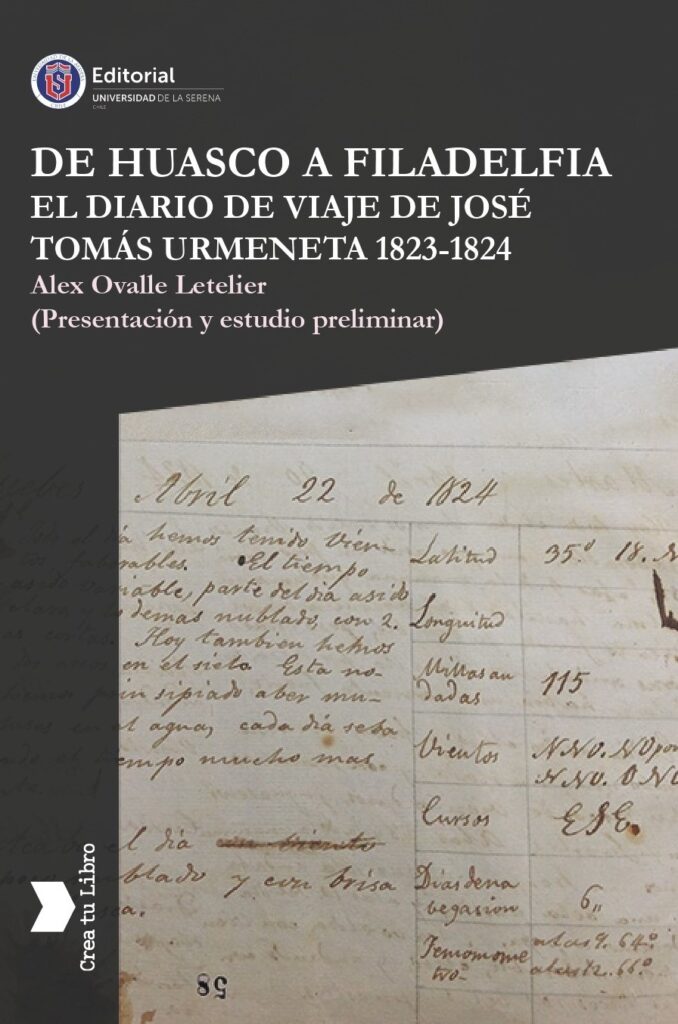 Editorial
UNIVERSIDAD DE LA SERENA
CHILE
DE HUASCO A FILADELFIA
EL DIARIO DE VIAJE DE JOSÉ
TOMÁS URMENETA 1823-1824
Alex Ovalle Letelier
(Presentación y estudio preliminar)
Abril 22 de 1824
el día hemos tenido Vien-
favorables. El tiempo
variable, parte del dia asido
demas nublado, con 2.
Hoy tambien hemos
en el sielo Esta no-
prinsipiado aber mu-
el agua, cada dia seba
tiempo mucho mas.
el día
nublado y con brisa
Latitud 35.º 18. N
Longuitud
Millas an
dadas 115
Vientos NNO. NO por
NNO. ONO
Cursos ESE.
Dias de na
vegasion 6,,
Termome
tro a las 9. 64º.
a las 12. 66º.
58
Crea tu Libro